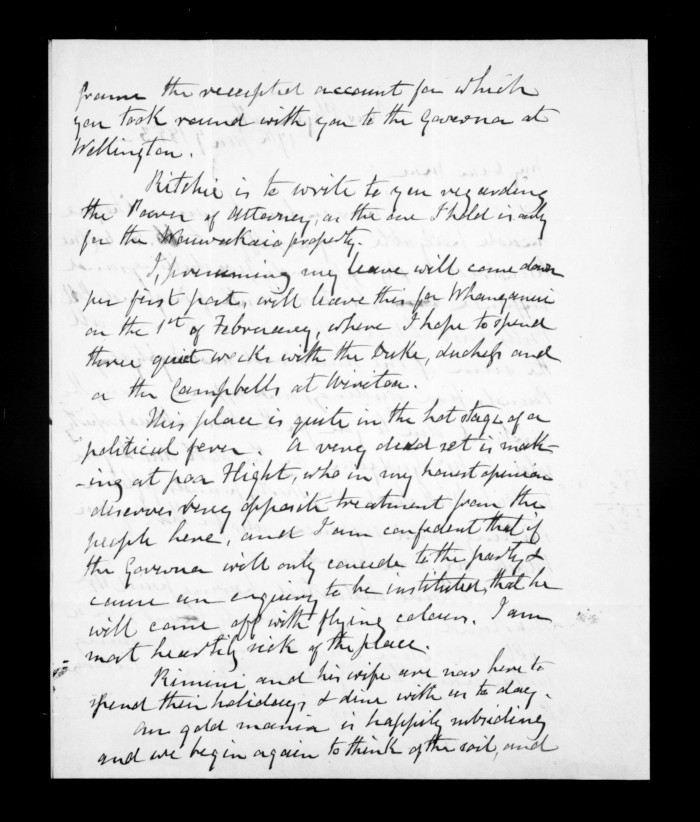 frame the receipted account for which
you took round with you to the Governor at
Wellington.
Ritchie is to write to you regarding
the Power of Attorney, as the one I hold is only
for the property.
I, presuming my leave will come down
per first post, will leave this for Whanganui
on the 1st of February, where I hope to spend
three quiet weeks with the Duke, duchess and
or the Campbells at Wiriton.
This place is quite in the hot stage of a
political fever. A very dead set is mak-
-ing at poor Flight, who in my honest opinion
deserves very opposite treatment from the
people here, and I am confident that if
the Governor will only concede to the party &
cause an enquiry to be instituted, that he
will come off with flying colours. I am
most heartily sick of the place.
and his wife are now here to
spend their holidays & dine with us to day.
Our gold mania is happily subsiding
and we begin again to think of the soil, and